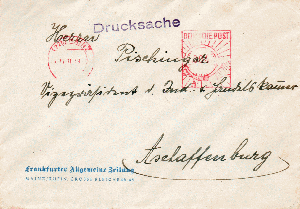 Drucksache
Herrn
DEUTSCHE POST
Pischinger
Vizepräsident d. Ind. & Handelskammer
Frankfurter Allgemeine Zeitung
Aschaffenburg